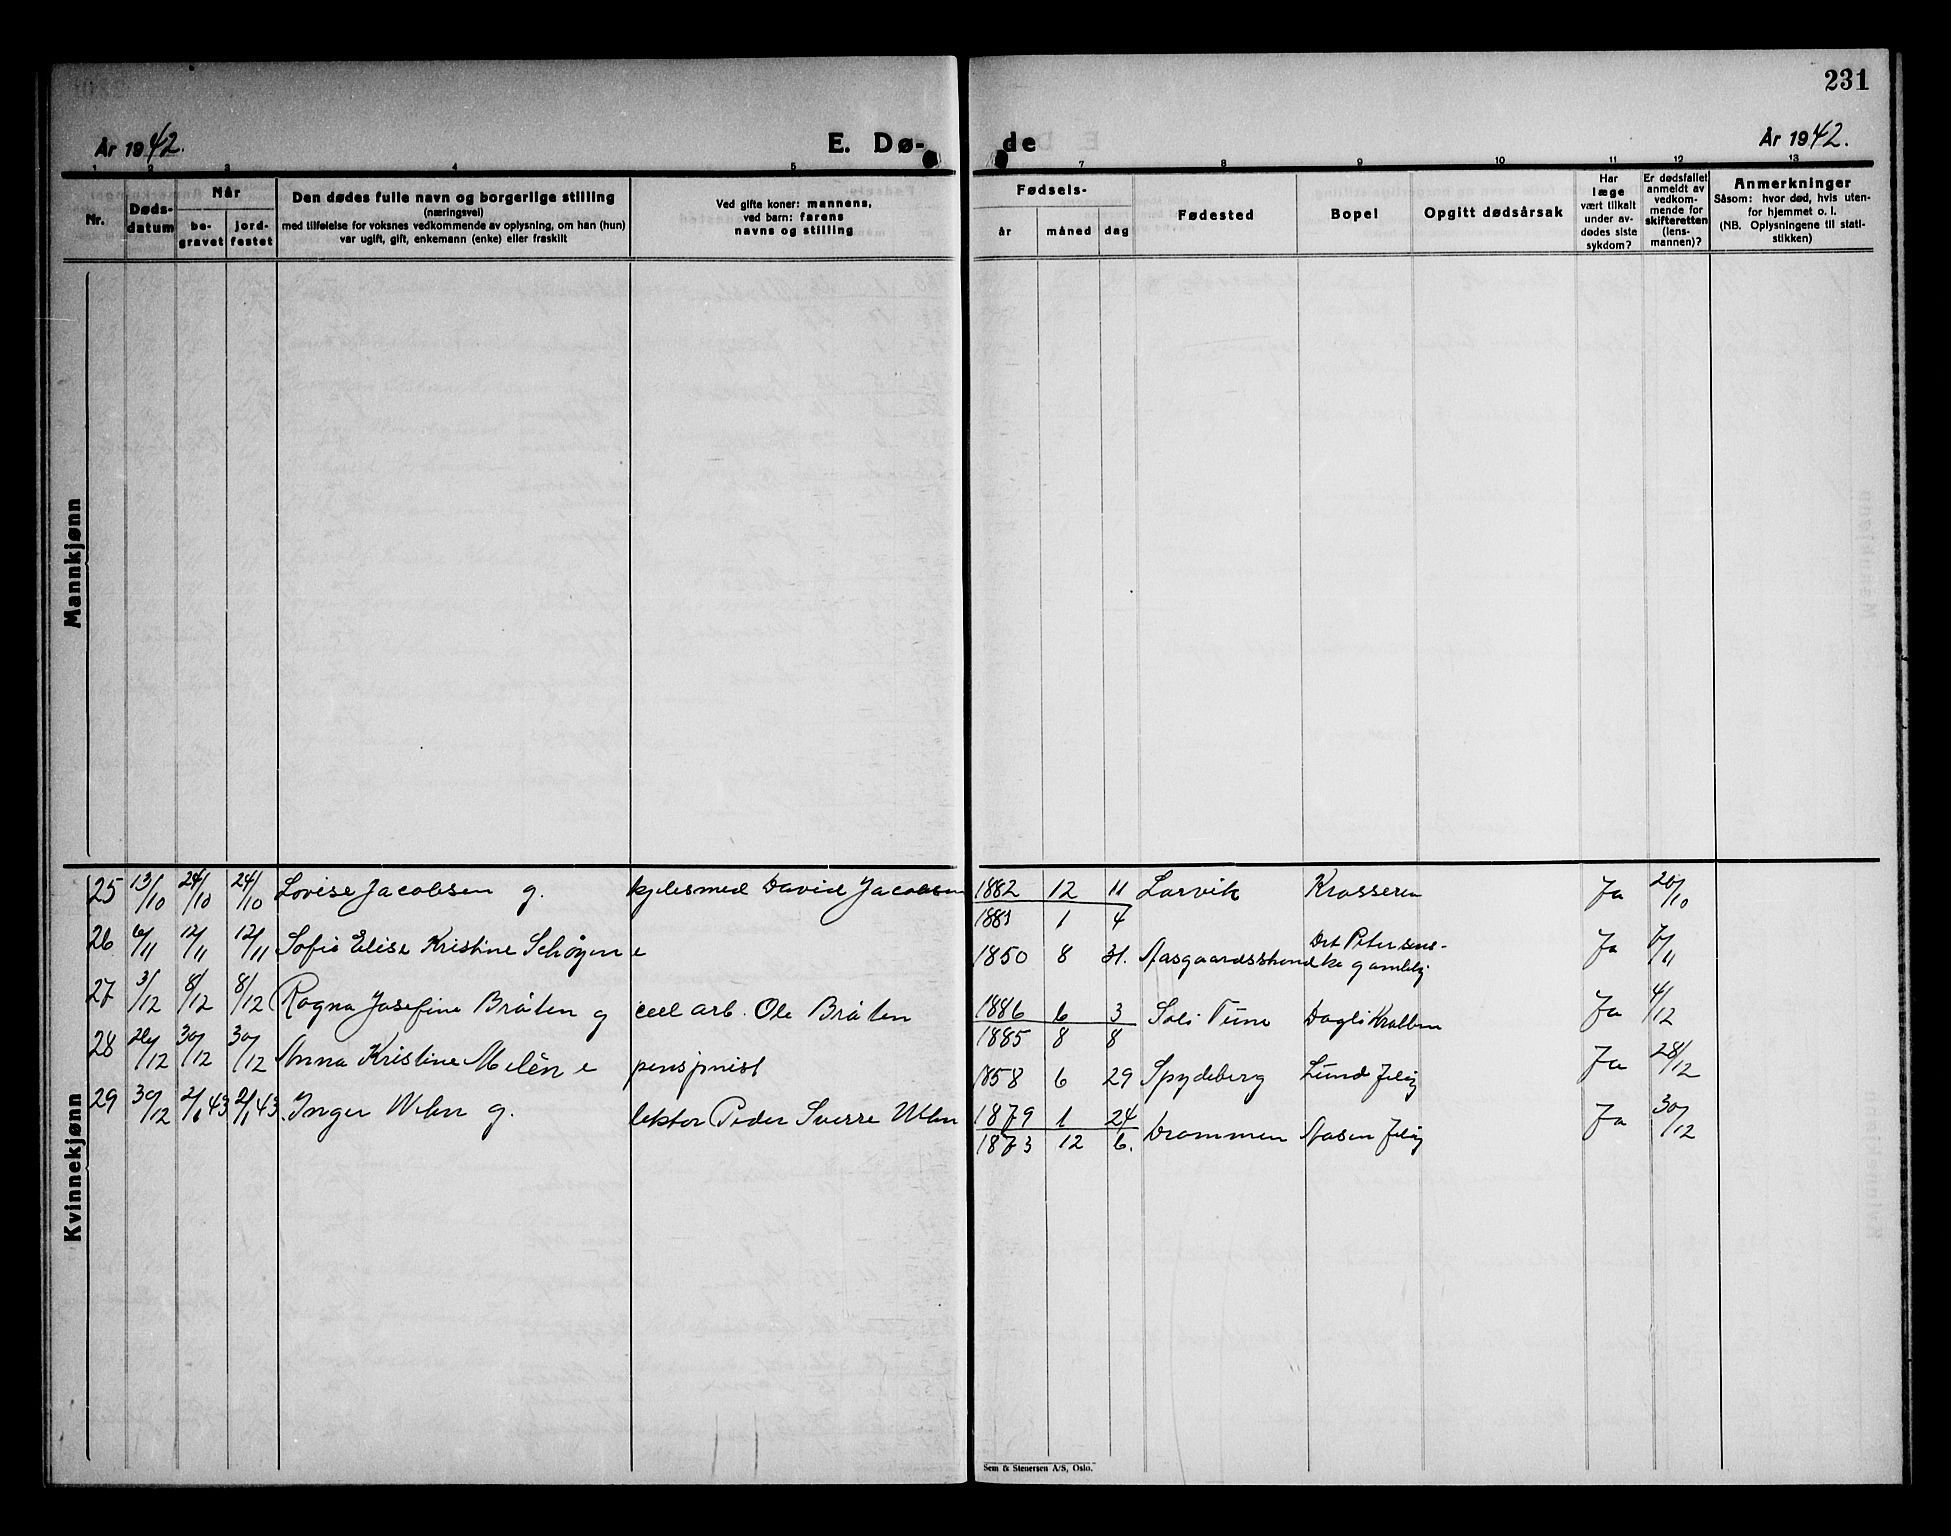 231
År 1942.
E. Dø-
de
År 1942.
1 2 3 4 5 7 8 9 10 11 12 13
Nr.
Døds-
datum
Når
be-
gravet
jord-
festet
Den dødes fulle navn og borgerlige stilling
(næringsvei)
med tilføielse for voksnes vedkommende av oplysning, om han (hun)
var ugift, gift, enkemann (enke) eller fraskilt
Ved gifte koner: mannens,
ved barn: farens
navns og stilling
Fødsels-
år måned dag
Fødested
Bopel
Opgitt dødsårsak
Har
læge
vært tilkalt
under av-
dødes siste
sykdom?
Er dødsfallet
anmeldt av
vedkom-
mende for
skifteretten
(lens-
mannen)?
Anmerkninger
Såsom: hvor død, hvis uten-
for hjemmet o. l.
(NB. Oplysningene til stati-
stikken)
Mannkjønn
Kvinnekjønn
25 13/10 24/10 24/10 Lovise Jacobsen g. kjelesmed David Jacobsen 1882 12 11 Larvik Krosseren Ja 20/10
1881 1 4
26 6/11 12/11 12/11 Sofie Elise Kristine Schøyen e 1850 8 31. Aasgaardsstrand Det Petersenske gamlehj Ja 7/11
27 3/12 8/12 8/12 Ragna Josefine Bråten g cell arb. Ole Bråten 1886 6 3 Soli Tune Dagli Krabben Ja 4/12
1885 8 8
28 26/12 30/12 30/12 Anna Kristine Melén e pensjonist 1858 6 29 Spydeberg Lund Jeløy Ja 28/12
29 30/12 2/1 43 2/1 43 Inger Welen g. lektor Peder Sverre Welen 1879 1 24 Drammen Aasen Jeløy Ja 30/12
1873 12 6.
Sem & Stenersen A/S, Oslo.